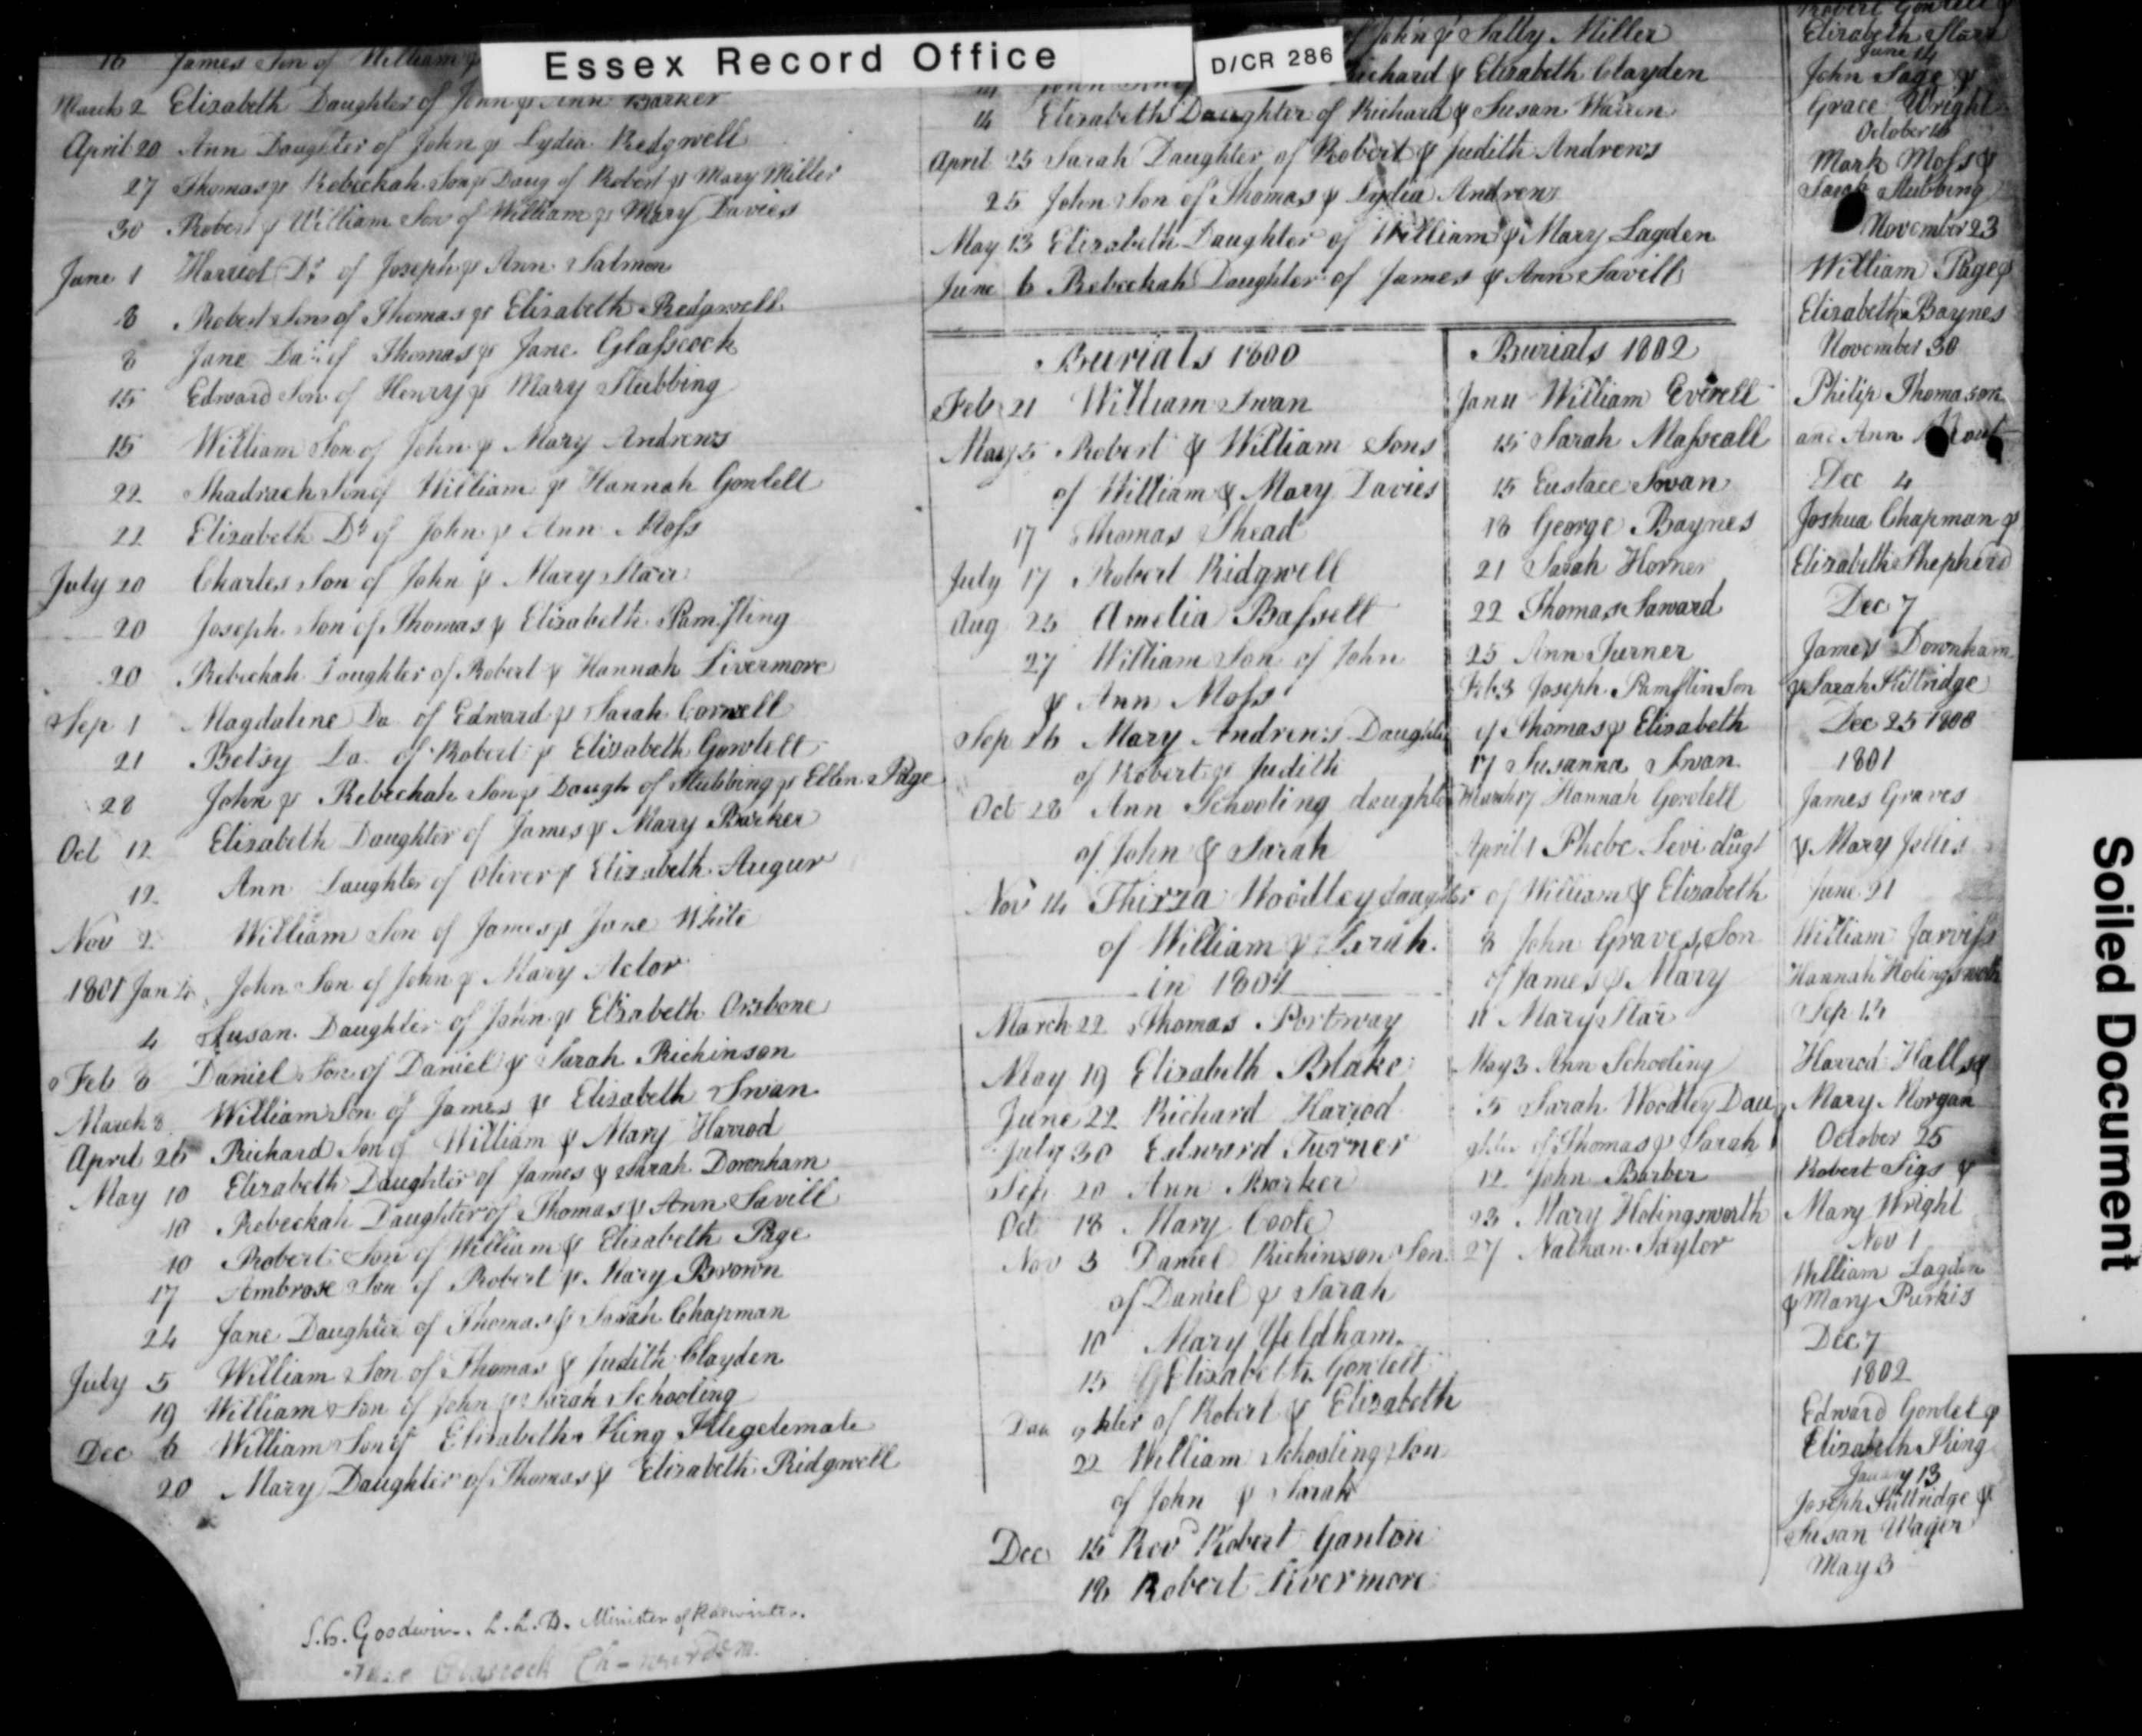 Essex Record Office
D/CR 286
Soiled Document
16 James Son of William &
March 2 Elizabeth Daughter of John & Ann Barker
April 20 Ann Daughter of John & Lydia Redgwell
27 Thomas & Rebeckah Son & Daug of Robert & Mary Miller
30 Robert & William Son of William & Mary Davies
June 1 Harriot Dr of Joseph & Ann Salmon
8 Robert Son of Thomas & Elizabeth Redgwell
8 Jane Da: of Thomas & Jane Glasscock
15 Edward Son of Henry & Mary Stubbing
15 William Son of John & Mary Andrews
22 Shadrach Son of William & Hannah Gowlett
22 Elizabeth Dr of John & Ann Moss
July 20 Charles Son of John & Mary Starr
20 Joseph Son of Thomas & Elizabeth
20 Rebeckah Daughter of Robert & Hannah Livermore
Sep 1 Magdalene Da of Edward & Sarah Cornell
21 Betsy Da. of Robert & Elizabeth Gowlett
28 John & Rebeckah Son & Daugh of Stubbing & Ellen Page
Oct 12 Elizabeth Daughter of James & Mary Barker
12 Ann Daughter of Oliver & Elizabeth Augur
Nov 2 William Son of James & Jane White
1801 Jan 4 John Son of John & Mary Actor
4 Susan Daughter of John & Elizabeth Orsbone
Feb 8 Daniel Son of Daniel & Sarah Richinson
March 8 William Son of James & Elizabeth Swan
April 26 Richard Son of William & Mary Harrod
May 10 Elizabeth Daughter of James & Sarah Downham
10 Rebeckah Daughter of Thomas & Ann Savill
10 Robert Son of William & Elizabeth Page
17 Ambrose Son of Robert & Mary Brown
24 Jane Daughter of Thomas & Sarah Chapman
July 5 William Son of Thomas & Judith Clayden
19 William Son of John & Sarah Schooling
Dec 6 William Son of Elizabeth King
20 Mary Daughter of Thomas & Elizabeth Ridgwell
Goodwin. L.L.D. Minister of Radwinter.
of John & Sally Miller
Richard & Elizabeth Clayden
14 Elizabeth Daughter of Richard & Susan Warren
April 25 Sarah Daughter of Robert & Judith Andrews
25 John Son of Thomas & Lydia Andrews
May 13 Elizabeth Daughter of William & Mary Lagden
June 6 Rebeckah Daughter of James & Ann Savill
Burials 1800
Feb 21 William Swan
May 5 Robert & William Sons
of William & Mary Davies
17 Thomas Shead
July 17 Robert Ridgwell
Aug 25 Amelia Bassett
27 William Son of John
& Ann Moss
Sep 26 Mary Andrews Daughter
of Robert & Judith
Oct 28 Ann Schooling daughter
of John & Sarah
Nov 14 Thirza Woodley daughter
of William & Sarah.
in 1801
March 22 Thomas Portway
May 19 Elizabeth Blake
June 22 Richard Harrod
July 30 Edward Turner
Sep 20 Ann Barker
Oct 18 Mary Coote
Nov 3 Daniel Richinson Son
of Daniel & Sarah
10 Mary Yeldham.
15 Elizabeth Gowlett
Daughter of Robert & Elizabeth
22 William Schooling Son
of John & Sarah
Dec 15 Rev Robert Ganton
18 Robert Livermore
Burials 1802
Jan 11 William Everell
15 Sarah Masscall
15 Eustace Swan
18 George Baynes
21 Sarah Horner
22 Thomas Saward
25 Ann Turner
Feb 3 Joseph Pamflin Son
of Thomas & Elizabeth
17 Susanna Swan
March 17 Hannah Gowlett
April 1 Phebe Levi dugt
of William & Elizabeth
8 John Graves, Son
of James & Mary
11 Mary Star
May 3 Ann Schooling
5 Sarah Woodley Dau
ghter of Thomas & Sarah
12 John Barber
23 Mary Holingsworth
27 Nathan Taylor
Robert Gowlett &
Elizabeth Starr
June 14
John Page &
Grace Wright
October
Mark Moss &
Sarah Stubbing
November 23
William Page &
Elizabeth Baynes
November 30
Philip Thomason
and Ann
Dec 4
Joshua Chapman &
Elizabeth Shepherd
Dec 7
James Downham
& Sarah Kittridge
Dec 25 1800
1801
James Graves
& Mary
June 21
William Jarviss
Hannah Holingsworth
Sep 13
Harrod Hall &
Mary Morgan
October 25
Robert Sigs &
Mary Wright
Nov 1
William Lagden
& Mary Purkis
Dec 7
1802
Edward Gowlet &
Elizabeth King
January 13
Joseph Kittridge &
Susan Wager
May 3